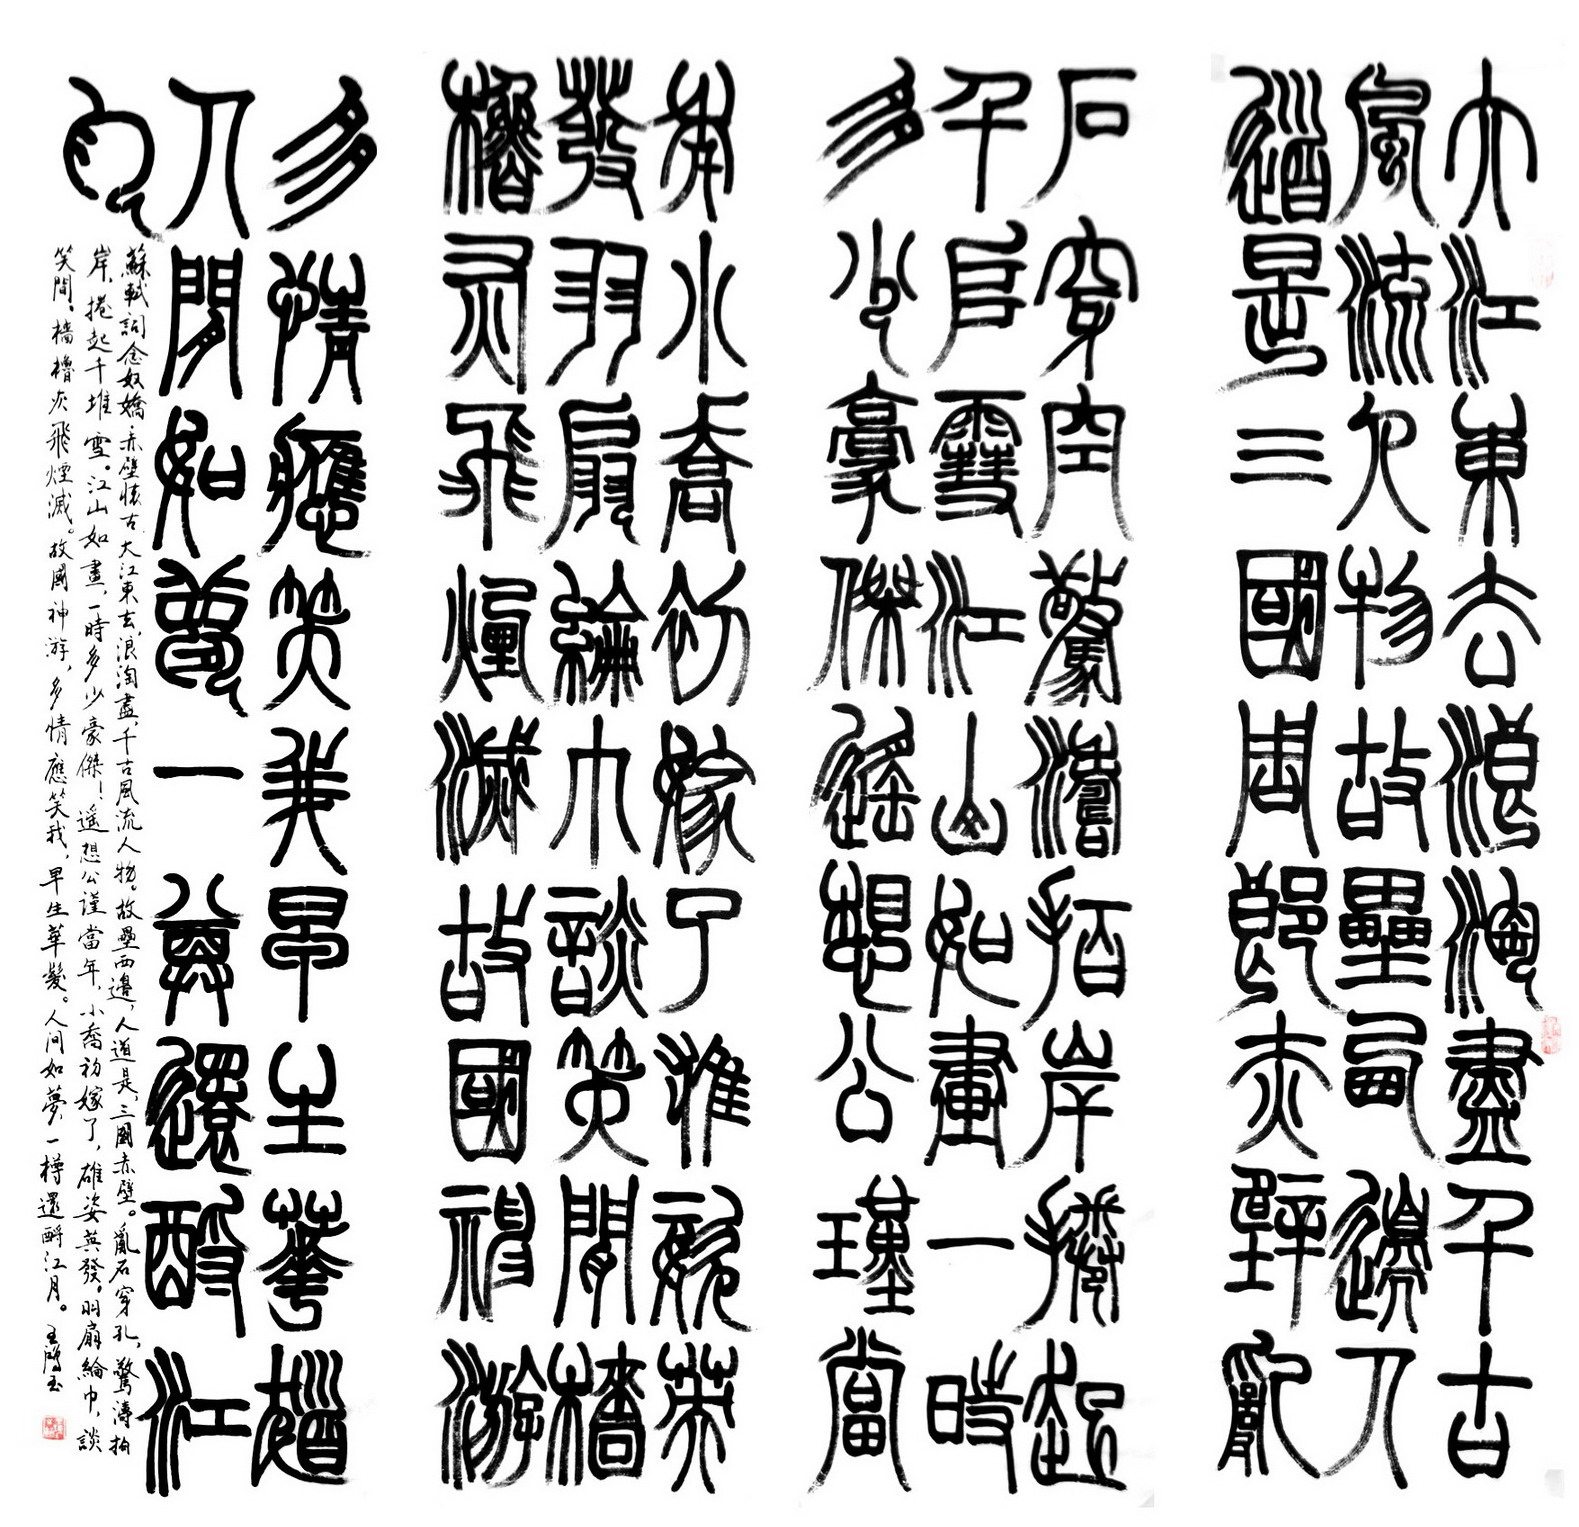 大江東去浪淘盡千古
風流人物故壘西邊人
道是三國周郎赤壁亂
石穿空驚濤拍岸捲起
千堆雪江山如畫一時
多少豪傑遙想公瑾當
年小喬初嫁了雄姿英
發羽扇綸巾談笑間檣
櫓灰飛煙滅故國神游
多情應笑我早生華髮
人間如夢一尊還酹江
月
蘇軾詞念奴嬌赤壁懷古大江東去,浪淘盡,千古風流人物。故壘西邊,人道是,三國赤壁。亂石穿孔,驚濤拍
岸,捲起千堆雪。江山如畫,一時多少豪傑!遥想公谨當年,小喬初嫁了,雄姿英發。羽扇綸巾,談
笑間。檣櫓灰飛煙滅。故國神游,多情應笑我,早生華髮。人间如夢,一樽還酹江月。王